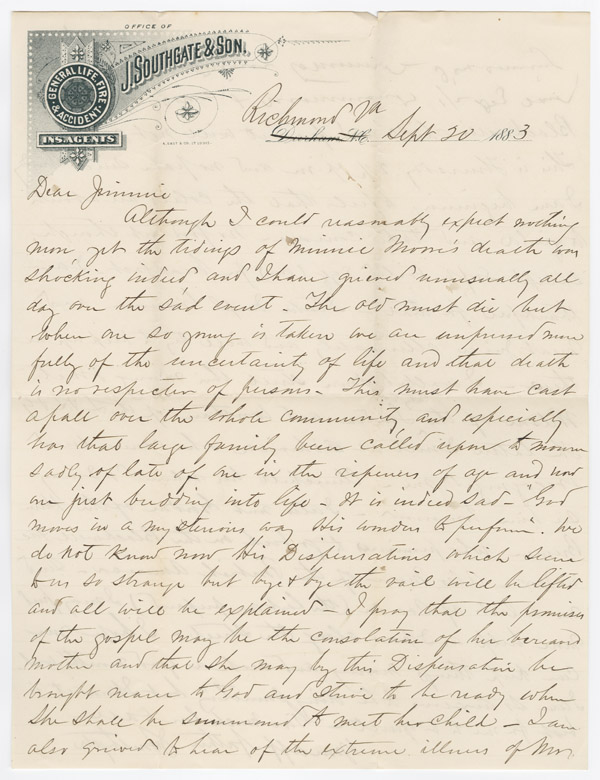 OFFICE OF
J. SOUTHGATE & SON,
GENERAL LIFE, FIRE & ACCIDENT
INS. AGENTS
Richmond Va
Durham, N.C. Sept 20 1883
Dear Jimmie
Although I could reasonably expect nothing
more, yet the tidings of Minnie Morris's death was
shocking indeed and I have grieved unusually all
day over the sad event - The old must die but
when one so young is taken we are impressed more
fully of the uncertainty of life and that death
is no respecter of persons - This must have cast
a pall over the whole community, and especially
has that large family been called upon to mourn
sadly of late of one in the ripeness of age and now
one just budding into life - It is indeed sad - "God
moves in a mysterious way His wonders to perform". We
do not know now His Dispensations which seem
to us so strange but bye & bye the vail will be lifted
and all will be explained - I pray that the promises
of the gospel may be the consolation of her bereaved
mother and that she may by this Dispensation be
brought nearer to God and strive to be ready when
she shall be summoned to meet her child - I am
also grieved to hear of the extreme illness of Mrs